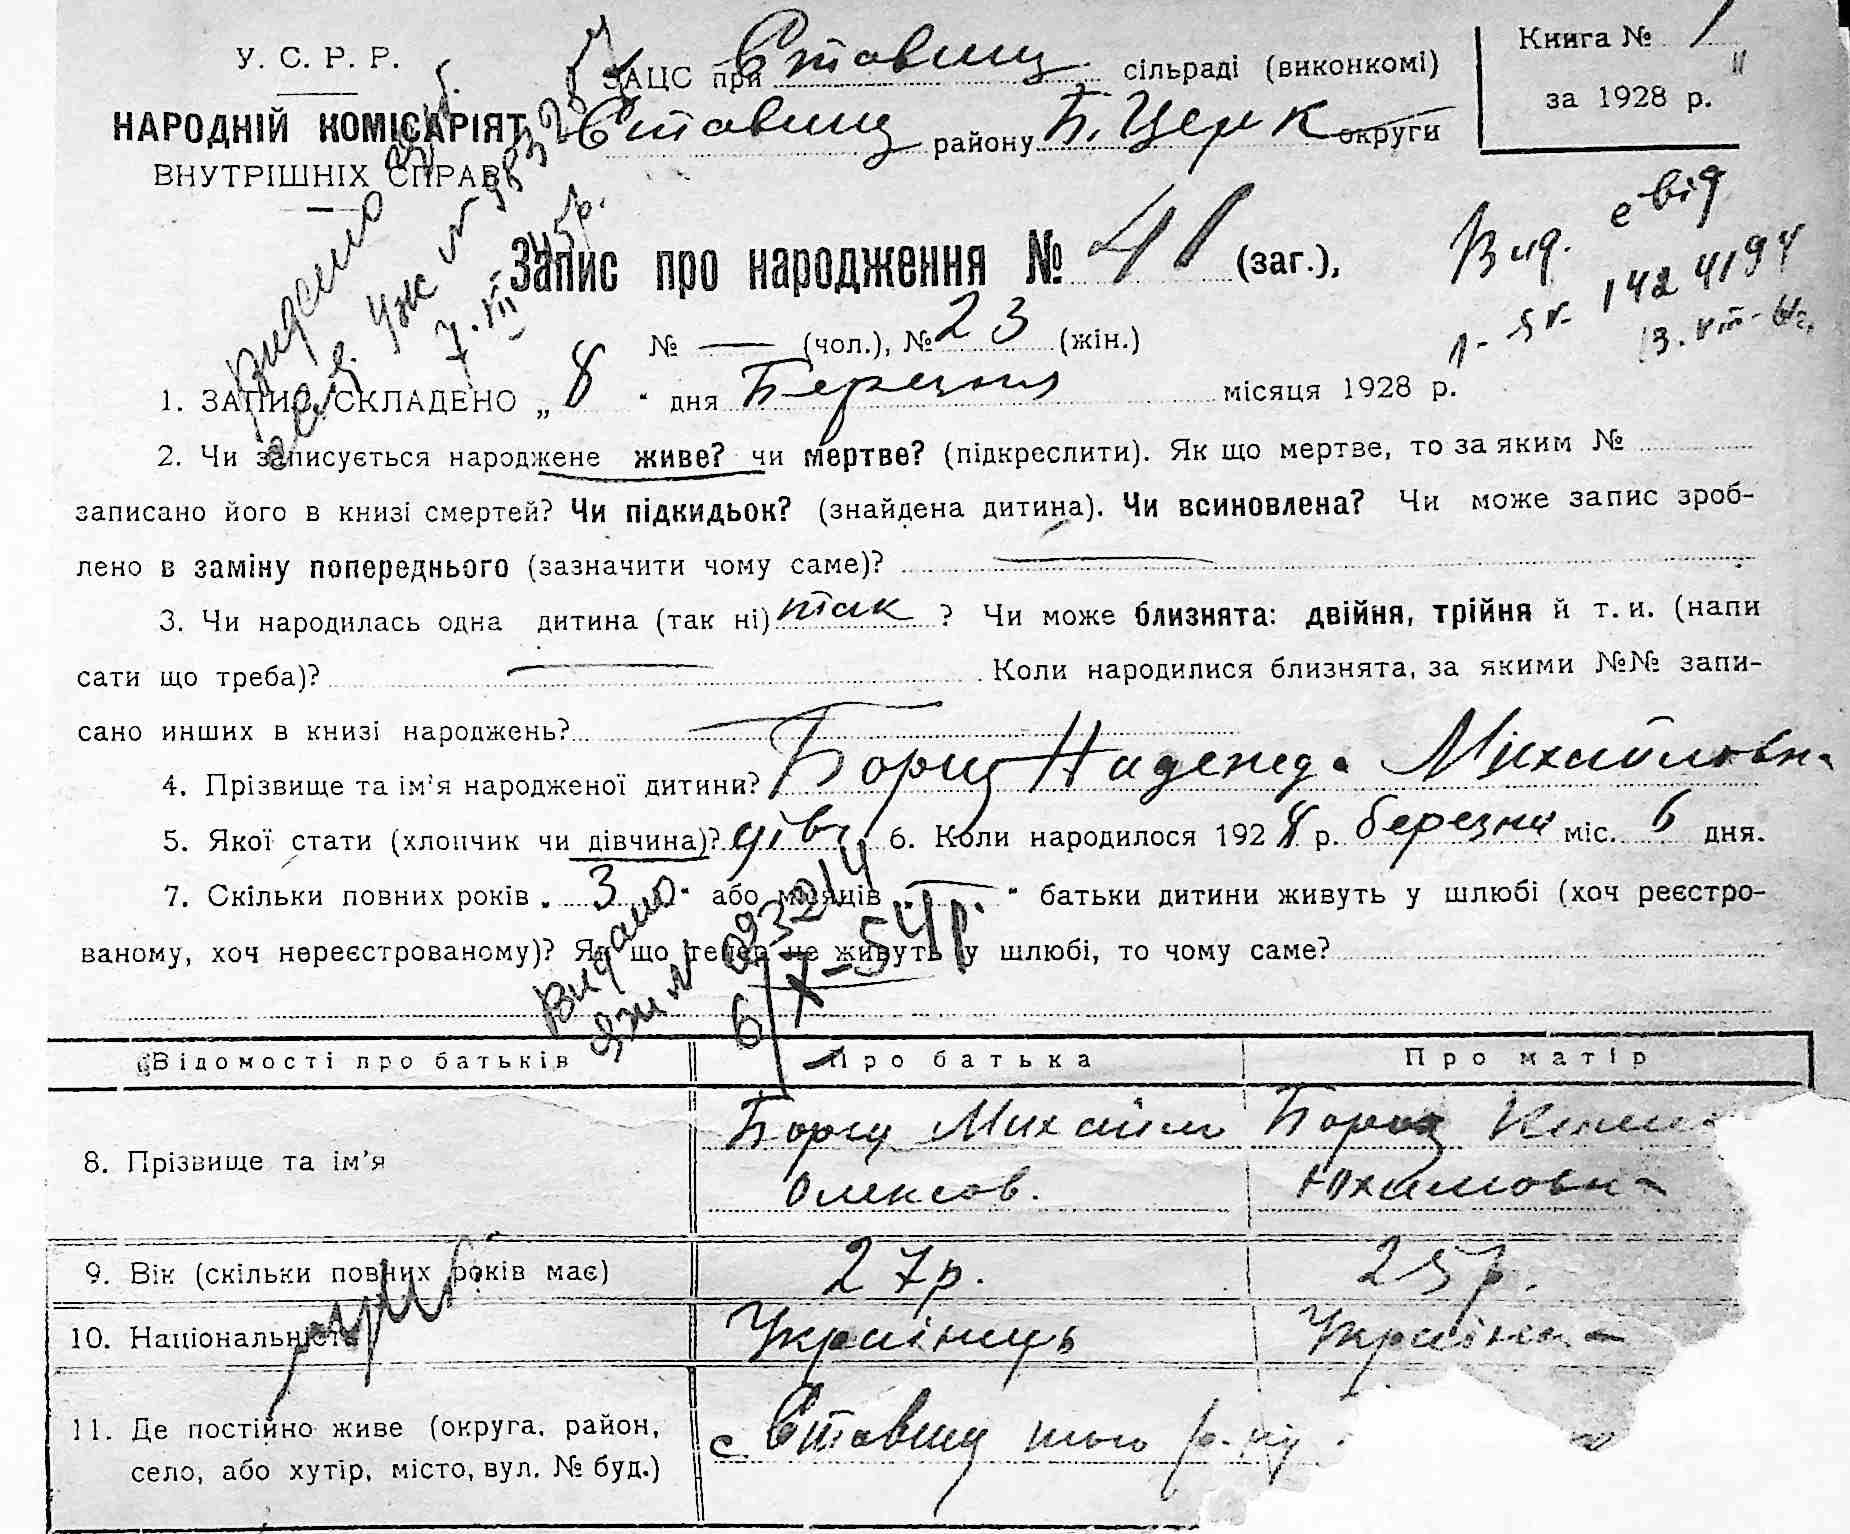 У. С. Р. Р.
НАРОДНІЙ КОМІСАРІЯТ
ВНУТРІШНІХ СПРАВ
ЗАЦС при Ставищ. сільраді (виконкомі)
Ставищ району Б. Церк округи
Книга № 1
за 1928 р.
Видано
7.III 45р.
Вид.
Запис про народження № 41 (заг.),
№ — (чол.), № 23 (жін.)
1. ЗАПИС СКЛАДЕНО „ 8 " дня Березня місяця 1928 р.
2. Чи записується народжене живе? чи мертве? (підкреслити). Як що мертве, то за яким №
записано його в книзі смертей? Чи підкидьок? (знайдена дитина). Чи всиновлена? Чи може запис зроб-
лено в заміну попереднього (зазначити чому саме)?
3. Чи народилась одна дитина (так ні) так ? Чи може близнята: двійня, трійня й т. и. (напи
сати що треба)? Коли народилися близнята, за якими №№ запи-
сано инших в книзі народжень?
4. Прізвище та ім'я народженої дитини? Борщ Надежда Михайловна
5. Якої стати (хлопчик чи дівчина)? дівч 6. Коли народилося 1928 р. березня міс. 6 дня.
7. Скільки повних років „ 3 " або місяців „ — " батьки дитини живуть у шлюбі (хоч реєстро-
ваному, хоч нереєстрованому)? Як що тепер не живуть у шлюбі, то чому саме?
Видано
6/X-54р.
Відомості про батьків Про батька Про матір
8. Прізвище та ім'я Борщ Михайло Борщ
Олексов. Юхимовна
9. Вік (скільки повних років має) 27р. 25р.
10. Національність Українець Українка
11. Де постійно живе (округа, район, с Ставищ того р-ну
село, або хутір, місто, вул. № буд.)